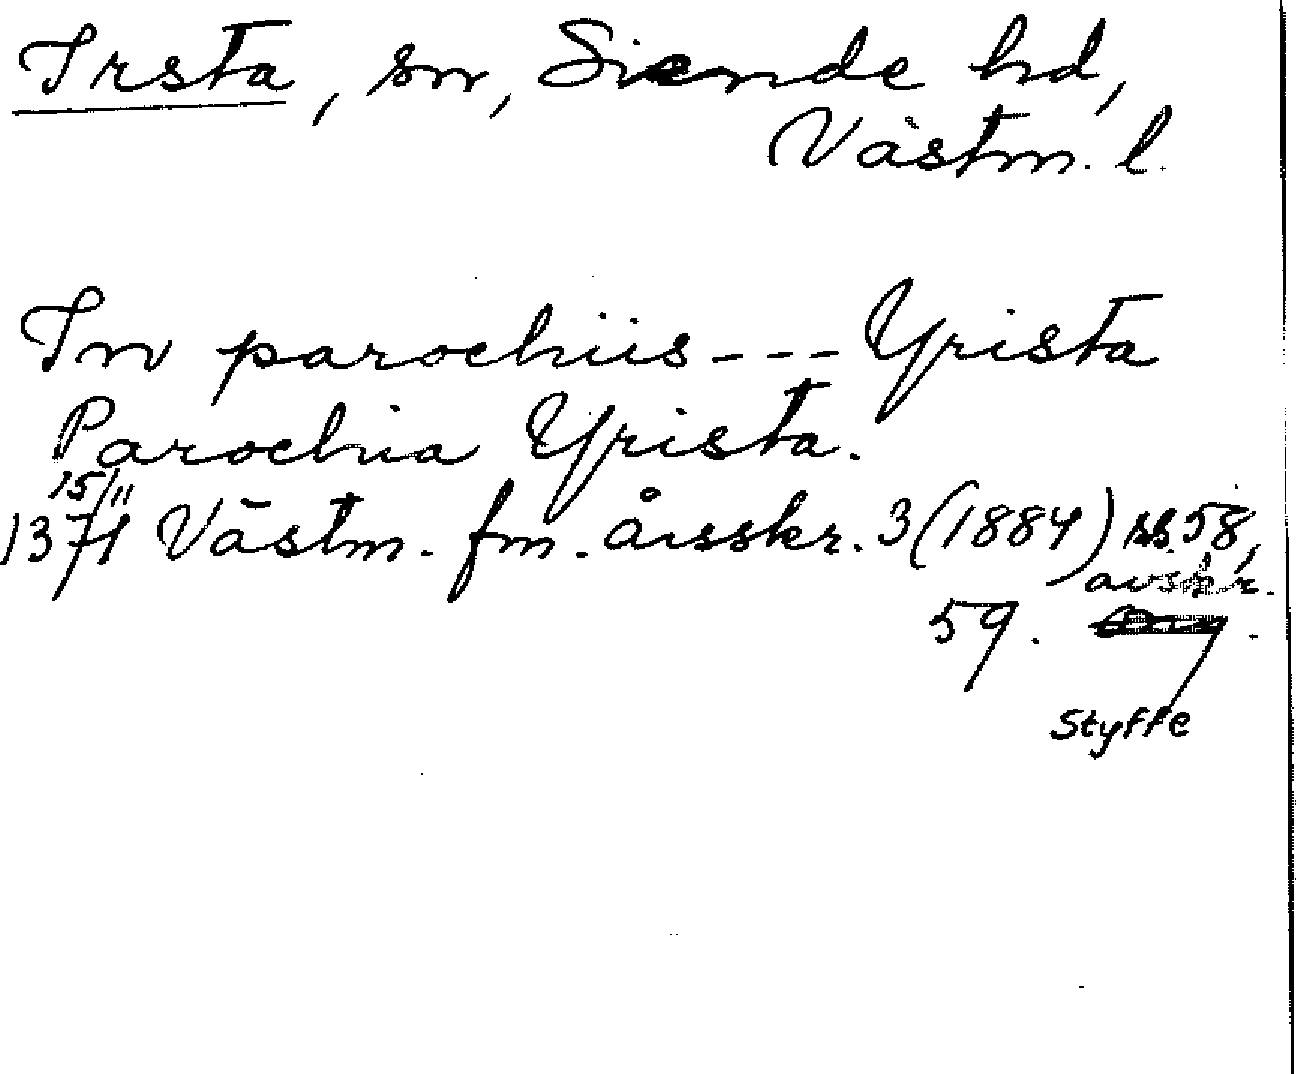 Irsta, sn, Siende hd,
Västm. l.
In parochiis --- Yrista
Parochia Yrista.
15/11
1371 Västm. fm. årsskr. 3 (1884) ss. 58,
avskr.
59.
Styffe